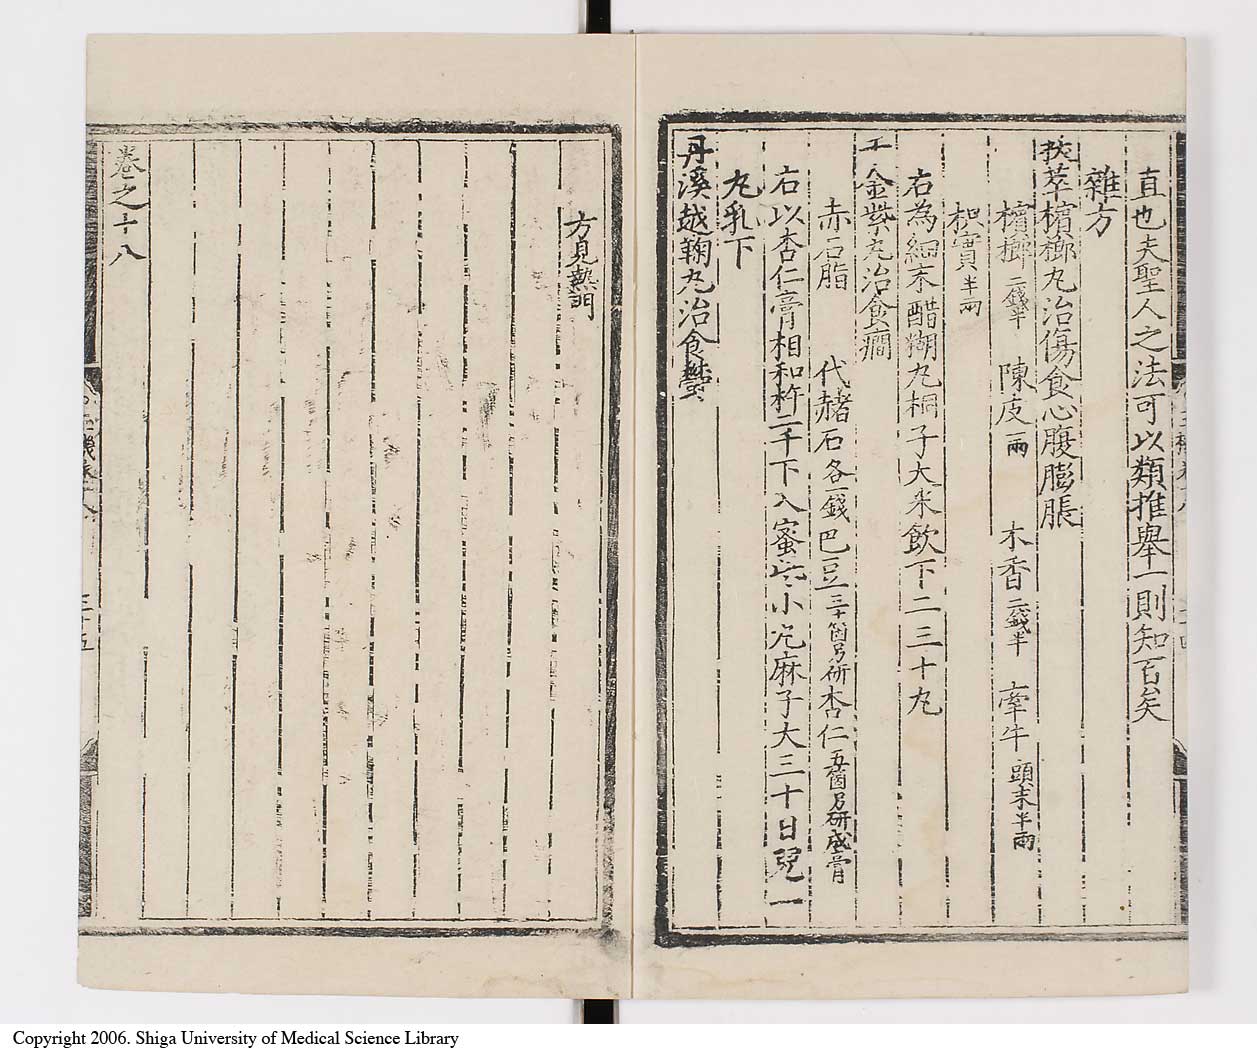 直也夫聖人之法可以類推舉一則知百矣
雜方
萃檳榔丸治傷食心腹膨脹
檳榔二錢半 陳皮一兩 木香二錢半 牽牛頭末半兩
枳實半兩
右為細末醋糊丸桐子大米飲下二三十丸
金紫丸治食癇
赤石脂 代赭石各一錢巴豆三十箇另研杏仁五箇另研成膏
右以杏仁膏相和杵二千下入蜜些小丸麻子大三十日兒一
丸乳下
丹溪越鞠丸治食鬱
方見熱門
卷之十八
三十五
Copyright 2006. Shiga University of Medical Science Library